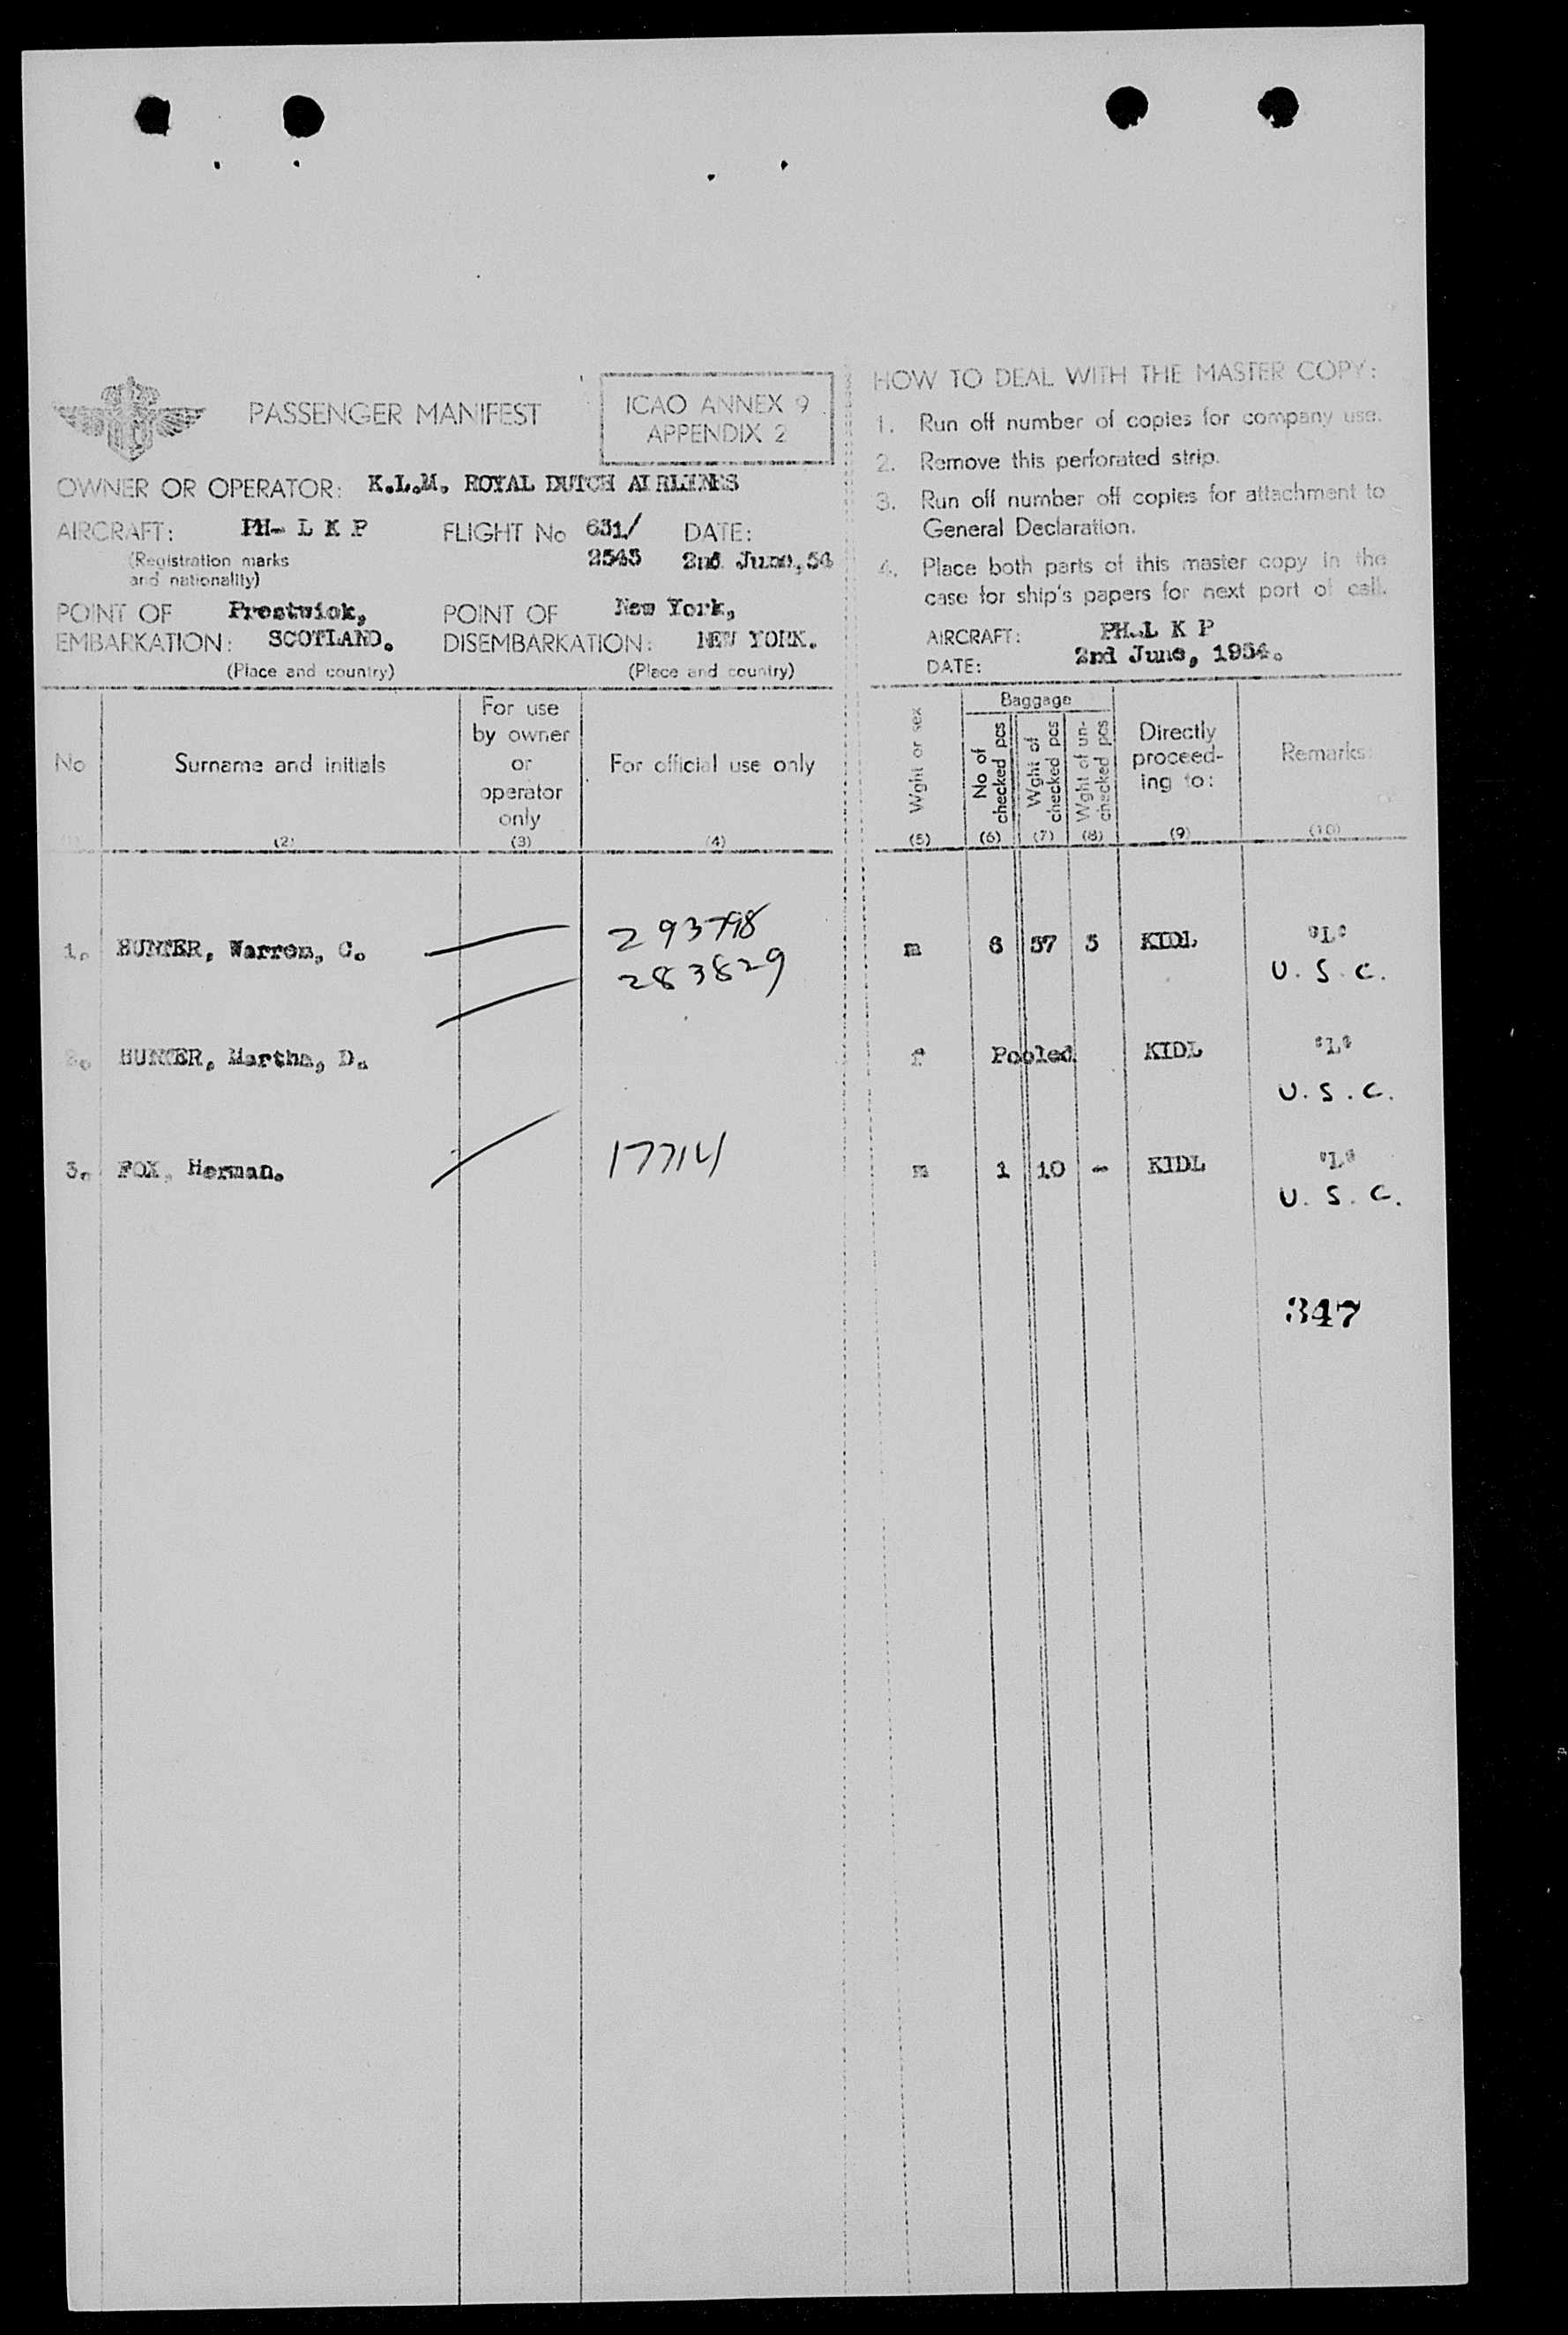 PASSENGER MANIFEST
ICAO ANNEX 9
APPENDIX 2
OWNER OR OPERATOR: K.L.M. ROYAL DUTCH AIRLINES
AIRCRAFT: PH- L K P FLIGHT No 631/ DATE:
(Registration marks 2545 2nd June, 54
and nationality)
POINT OF Prestwick, POINT OF New York,
EMBARKATION: SCOTLAND. DISEMBARKATION: NEW YORK.
(Place and country) (Place and country)
HOW TO DEAL WITH THE MASTER COPY:
1. Run off number of copies for company use.
2. Remove this perforated strip.
3. Run off number off copies for attachment to
General Declaration.
4. Place both parts of this master copy in the
case for ship's papers for next port of call.
AIRCRAFT: PH-L K P
DATE: 2nd June, 1954.
No
Surname and initials
(2)
For use
by owner
or
operator
only
(3)
For official use only
(4)
Wght or sex
(5)
Baggage
No of
checked pcs
(6)
Wght of
checked pcs
(7)
Wght of un-
checked pcs
(8)
Directly
proceed-
ing to:
(9)
Remarks:
(10)
1. HUNTER, Warren, C. 293798 m 6 57 5 KIDL "L"
283829 U.S.C.
2. HUNTER, Martha, D. f Pooled KIDL "L"
U.S.C.
3. FOX, Herman. 17714 m 1 10 - KIDL "L"
U.S.C.
347